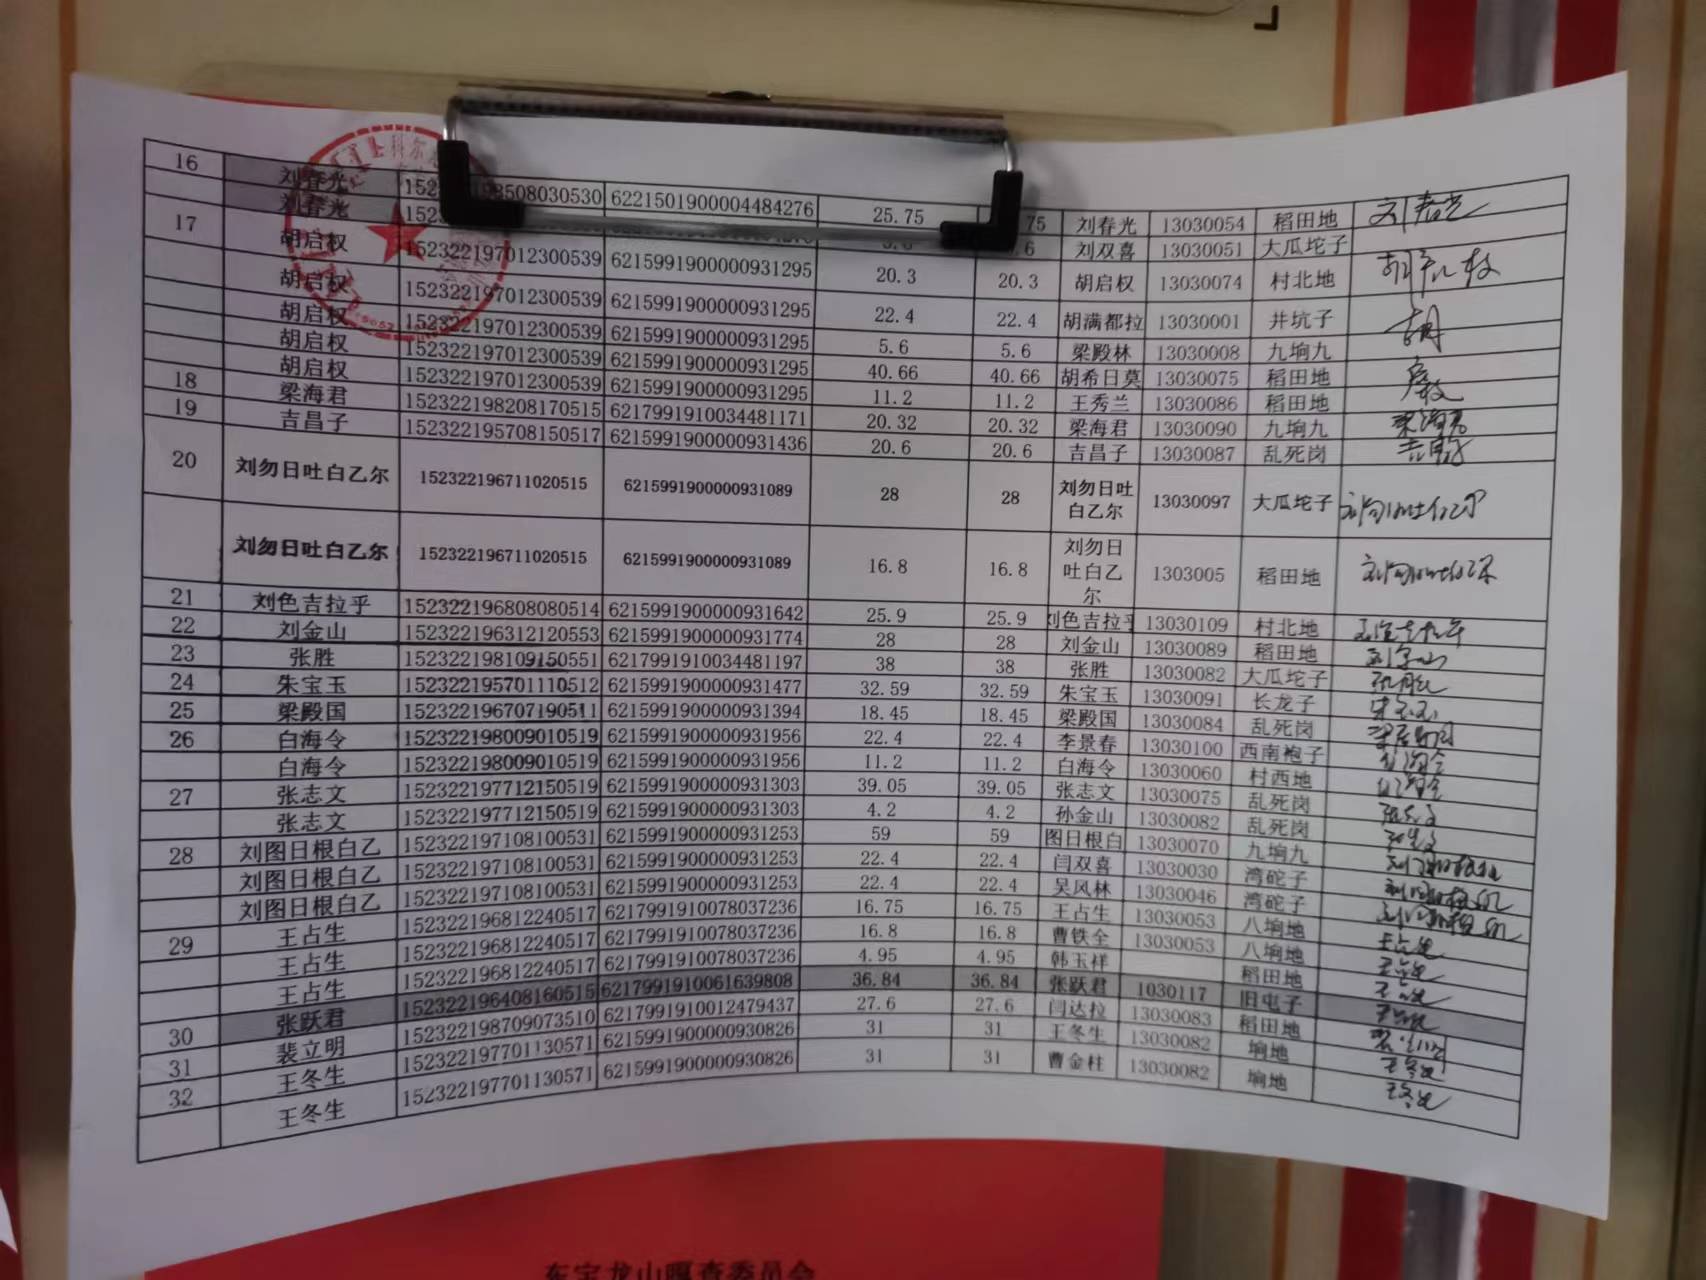 16 刘春光 6221501900004484276 25.75 刘春光 13030054 稻田地 刘春光
刘春光 刘双喜 13030051 大瓜坨子
17 胡启权 152322197012300539 6215991900000931295 20.3 20.3 胡启权 13030074 村北地 胡启权
胡启权 152322197012300539 6215991900000931295 22.4 22.4 胡满都拉 13030001 井坑子
胡启权 152322197012300539 6215991900000931295 5.6 5.6 梁殿林 13030008 九垧九
胡启权 152322197012300539 6215991900000931295 40.66 40.66 胡希日莫 13030075 稻田地
胡启权 152322197012300539 6215991900000931295 11.2 11.2 王秀兰 13030086 稻田地
18 梁海君 152322198208170515 6217991910034481171 20.32 20.32 梁海君 13030090 九垧九 梁海君
19 吉昌子 152322195708150517 6215991900000931436 20.6 20.6 吉昌子 13030087 乱死岗
20 刘勿日吐白乙尔 152322196711020515 6215991900000931089 28 28 刘勿日吐白乙尔 13030097 大瓜坨子 刘勿日吐白乙尔
刘勿日吐白乙尔 152322196711020515 6215991900000931089 16.8 16.8 刘勿日吐白乙尔 1303005 稻田地 刘勿日吐白乙尔
21 刘色吉拉乎 152322196808080514 6215991900000931642 25.9 25.9 刘色吉拉乎 13030109 村北地 刘色吉拉乎
22 刘金山 152322196312120553 6215991900000931774 28 28 刘金山 13030089 稻田地 刘金山
23 张胜 152322198109150551 6217991910034481197 38 38 张胜 13030082 大瓜坨子 张胜
24 朱宝玉 152322195701110512 6215991900000931477 32.59 32.59 朱宝玉 13030091 长龙子 朱宝玉
25 梁殿国 152322196707190511 6215991900000931394 18.45 18.45 梁殿国 13030084 乱死岗 梁殿国
26 白海令 152322198009010519 6215991900000931956 22.4 22.4 李景春 13030100 西南袍子 白海令
白海令 152322198009010519 6215991900000931956 11.2 11.2 白海令 13030060 村西地 白海令
27 张志文 152322197712150519 6215991900000931303 39.05 39.05 张志文 13030075 乱死岗 张志文
张志文 152322197712150519 6215991900000931303 4.2 4.2 孙金山 13030082 乱死岗 张志文
28 刘图日根白乙 152322197108100531 6215991900000931253 59 59 图日根白 13030070 九垧九
刘图日根白乙 152322197108100531 6215991900000931253 22.4 22.4 闫双喜 13030030 湾砣子
刘图日根白乙 152322197108100531 6215991900000931253 22.4 22.4 吴风林 13030046 湾砣子
29 王占生 152322196812240517 6217991910078037236 16.75 16.75 王占生 13030053 八垧地 王占生
王占生 152322196812240517 6217991910078037236 16.8 16.8 曹铁全 13030053 八垧地 王占生
王占生 152322196812240517 6217991910078037236 4.95 4.95 韩玉祥 稻田地 王占生
30 张跃君 152322196408160515 6217991910061639808 36.84 36.84 张跃君 1030117 旧屯子
31 裴立明 152322198709073510 6217991910012479437 27.6 27.6 闫达拉 13030083 稻田地
32 王冬生 152322197701130571 6215991900000930826 31 31 王冬生 13030082 垧地 王冬生
王冬生 152322197701130571 6215991900000930826 31 31 曹金柱 13030082 垧地 王冬生
东宝龙山嘎查委员会